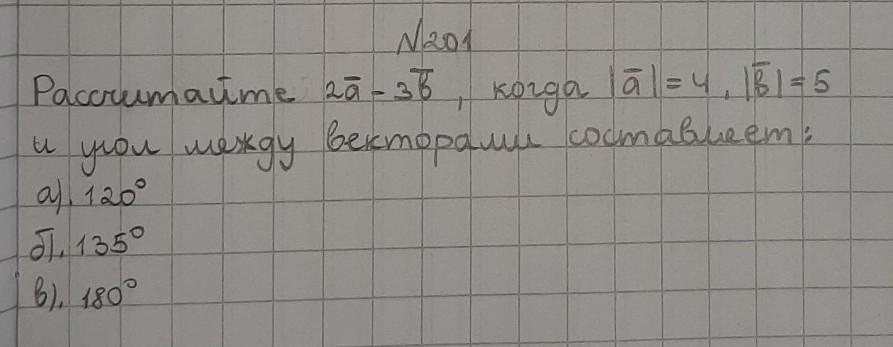 N201
Рассчитайте 2a̅ - 3b̅, когда |a̅|=4, |b̅|=5
и угол между векторами составляет:
а). 120°
б). 135°
в). 180°